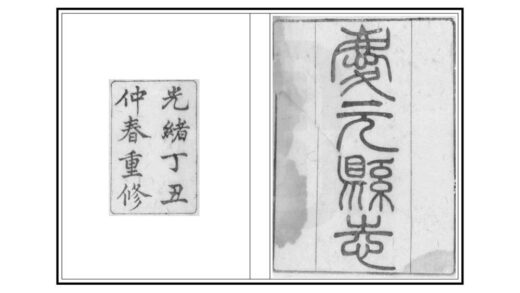 慶元縣志
光緒丁丑
仲春重修